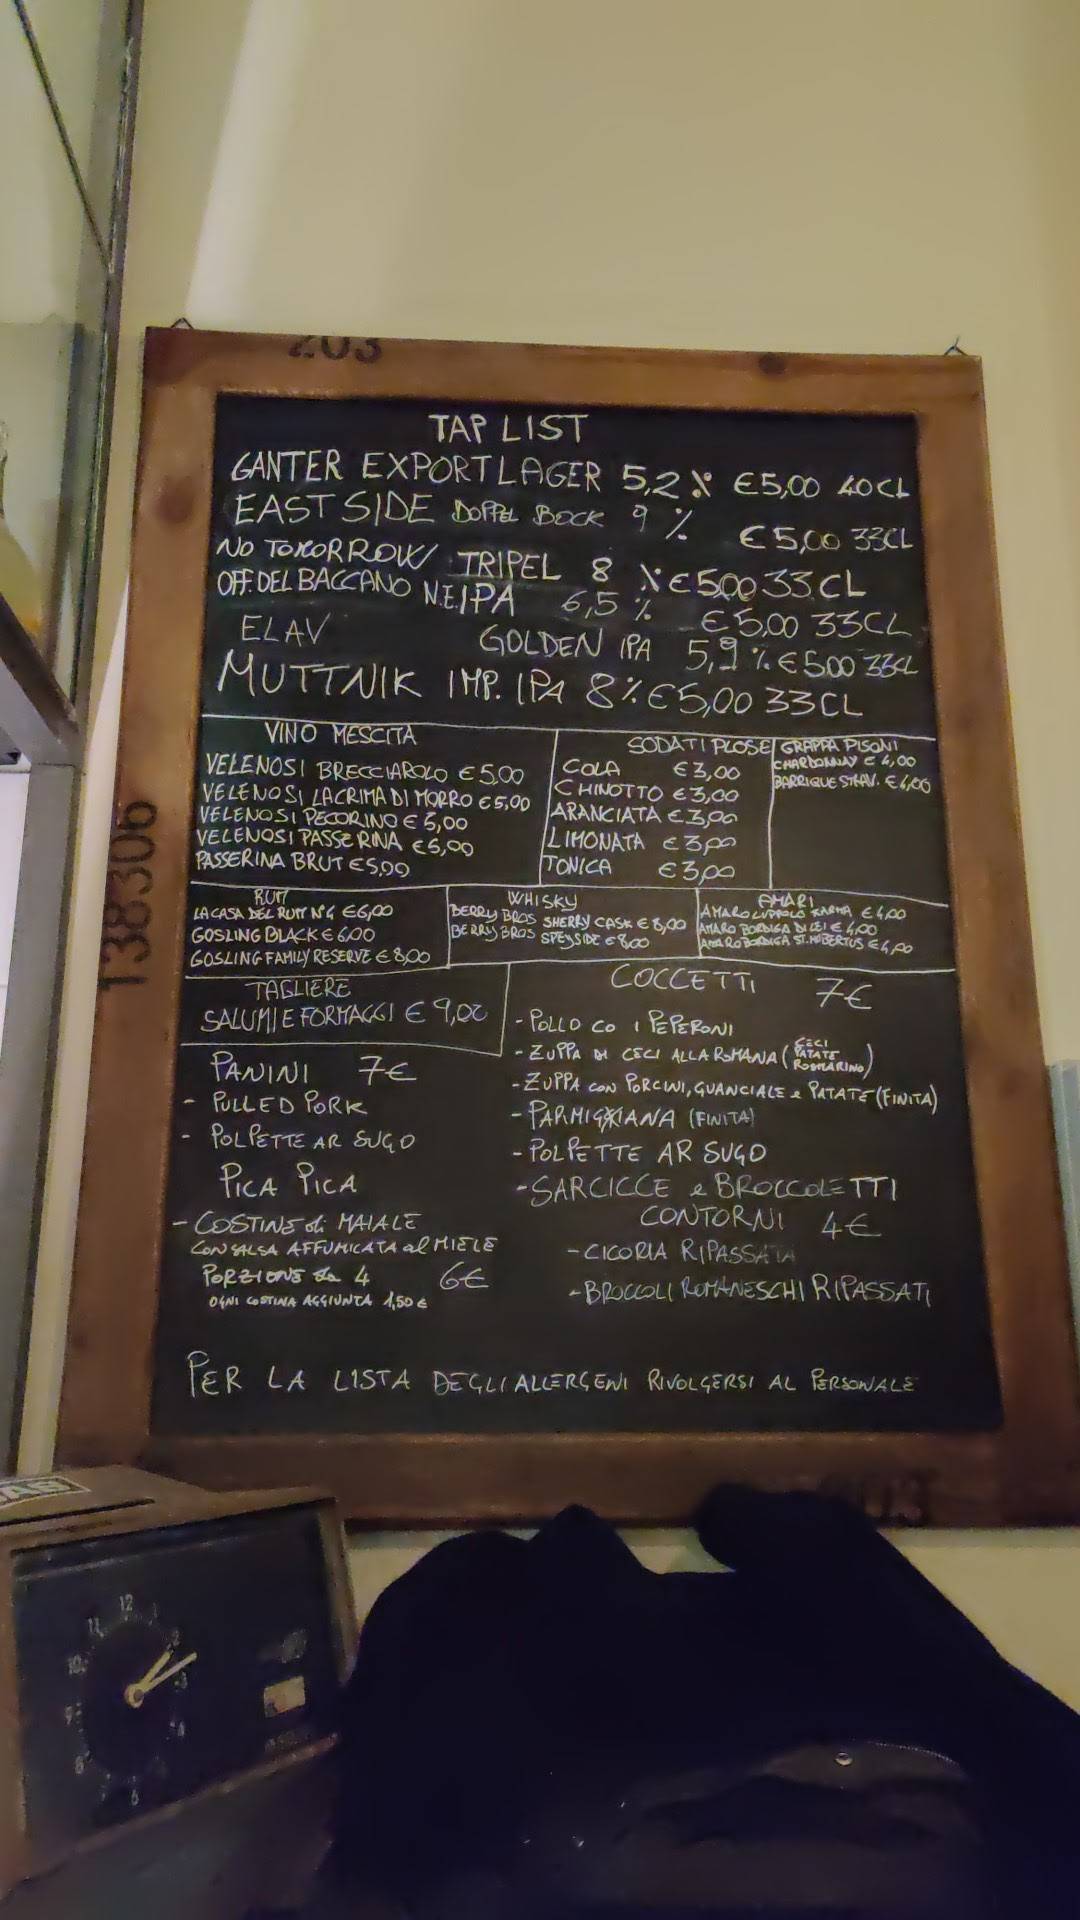 203
TAP LIST
GANTER EXPORT LAGER 5,2% €5,00 40CL
EAST SIDE DOPPEL BOCK 9% €5,00 33CL
NO TOMORROW TRIPEL 8% €5,00 33CL
OFF. DEL BACCANO N.E.IPA 6,5% €5,00 33CL
ELAV GOLDEN IPA 5,9% €5.00 33CL
MUTTNIK IMP. IPA 8% €5,00 33CL
VINO MESCITA
VELENOSI BRECCIAROLO €5,00
VELENOSI LACRIMA DI MORRO €5,00
VELENOSI PECORINO €5,00
VELENOSI PASSERINA €5,00
PASSERINA BRUT €5,00
SODATI PLOSE
COLA €3,00
CHINOTTO €3,00
ARANCIATA €3,00
LIMONATA €3,00
TONICA €3,00
GRAPPA PISONI
CHARDONNAY €4,00
BARRIQUE STRAV. €4,00
138306
RUM
LA CASA DEL RUM N°4 €6,00
GOSLING BLACK €6,00
GOSLING FAMILY RESERVE €8,00
WHISKY
BERRY BROS SHERRY CASK €8,00
BERRY BROS SPEYSIDE €8,00
AMARI
AMARO LUPPOLO KARMA €4,00
AMARO BORDIGA DI LEI €4,00
AMARO BORDIGA ST. HUBERTUS €4,00
TAGLIERE
SALUMI E FORMAGGI €9,00
PANINI 7€
- PULLED PORK
- POLPETTE AR SUGO
PICA PICA
- COSTINE di MAIALE
CON SALSA AFFUMICATA al MIELE
PORZIONE da 4 6€
OGNI COSTINA AGGIUNTA 1,50€
COCCETTI 7€
- POLLO CO I PEPERONI
- ZUPPA DI CECI ALLA ROMANA (CECI PATATE ROSMARINO)
- ZUPPA CON PORCINI, GUANCIALE e PATATE (FINITA)
- PARMIGIANA (FINITA)
- POLPETTE AR SUGO
- SARCICCE e BROCCOLETTI
CONTORNI 4€
- CICORIA RIPASSATA
- BROCCOLI ROMANESCHI RIPASSATI
PER LA LISTA DEGLI ALLERGENI RIVOLGERSI AL PERSONALE